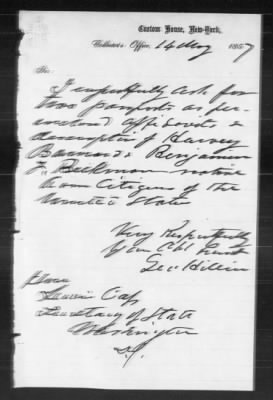 Custom House, New-York,
Collector's Office, 14 May 1857
Sir:
I respectfully ask for
two passports as per
enclosed affidavits &
description of Harvey
Barnard & Benjamin
F. Beekman native
born Citizens of the
United State
Very Respectfully
Your Obt Servt
Geo:
Lewis Cass
Secretary of State
Washington